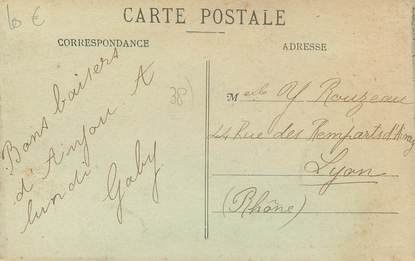 6 €
CARTE POSTALE
CORRESPONDANCE
ADRESSE
38)
Bons baisers
d'Anjou A
lundi Gaby
Melle Y Rouzeau
44 Rue des Remparts d'Ainay
Lyon
(Rhône)